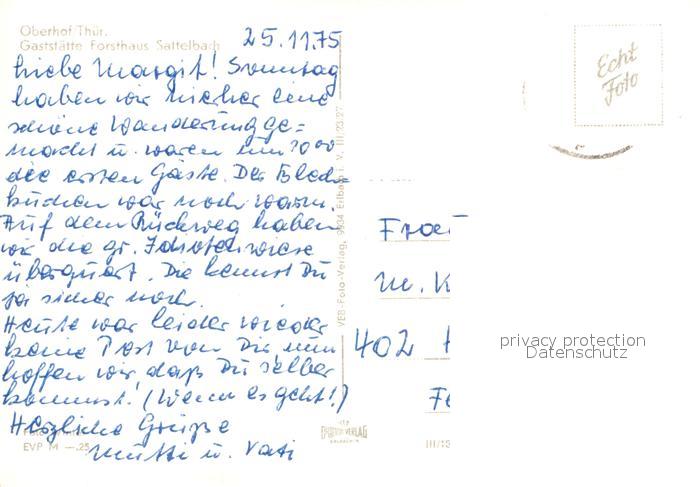 Oberhof Thür.
Gaststätte Forsthaus Sattelbach
25.11.75
Liebe Margit! Sonntag
haben wir hierher eine
schöne Wanderung ge=
macht u. waren um 10⁰⁰
die ersten Gäste. Der Blech=
kuchen war noch warm.
Auf dem Rückweg haben
wir die gr.
überquert. Die kennst Du
ja sicher noch.
Heute war leider wieder
keine Post von Dir, nun
hoffen wir daß Du selber
kommst! (Wenn es geht!)
Herzliche Grüße
Mutti u. Vati
EVP M —.25
VEB-Foto-Verlag, 9934 Erlbach i. V.
Echt
Foto
Frau
M. K
402
privacy protection
Datenschutz
III/18